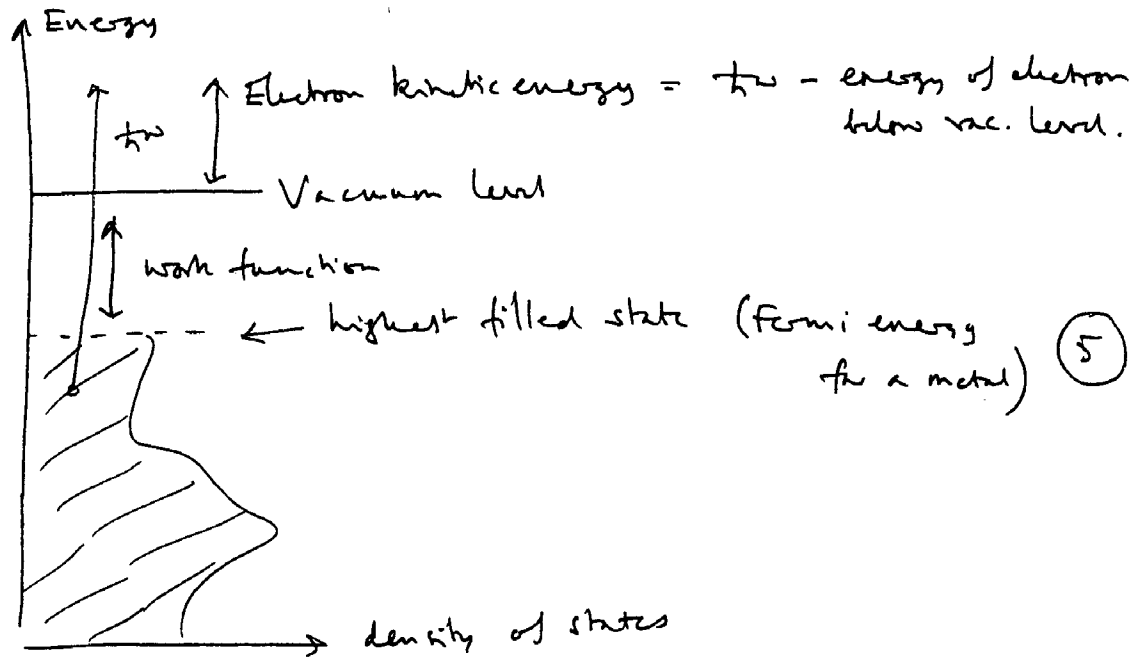 Energy
Electron kinetic energy = ħω - energy of electron
below vac. level.
ħω
Vacuum level
work function
highest filled state (Fermi energy
for a metal)
5
density of states